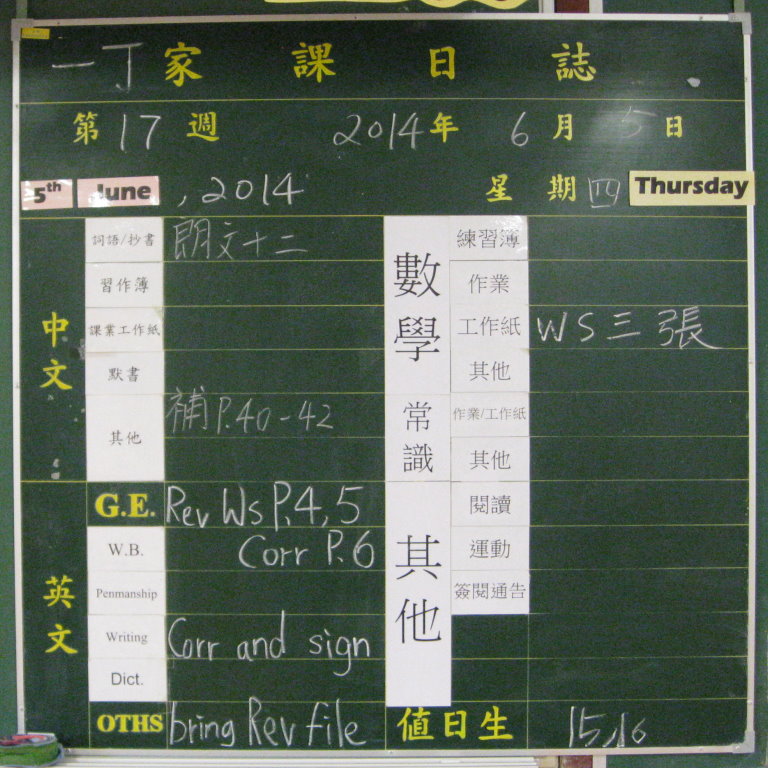 一丁家課日誌
第17週 2014年6月5日
5th June, 2014 星期四 Thursday
中文
詞語/抄書 朗文十二
習作簿
課業工作紙
默書
其他 補P.40-42
英文
G.E. Rev Ws P.4,5
W.B. Corr P.6
Penmanship
Writing Corr and sign
Dict.
OTHS bring Rev file
數學
練習簿
作業
工作紙 WS三張
其他
常識
作業/工作紙
其他
其他
閱讀
運動
簽閱通告
值日生 15,16